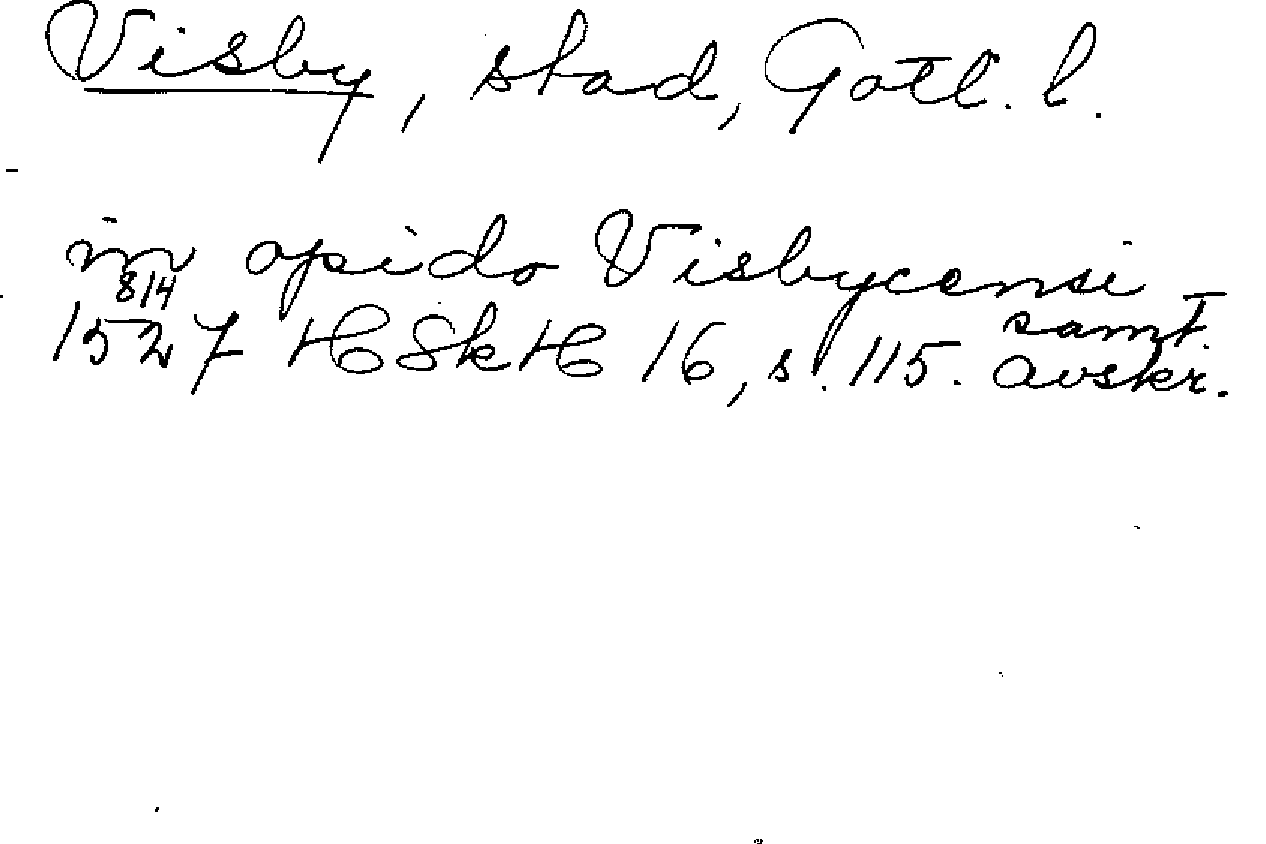 Visby, stad, Gotl. l.
in opido Visbycensi
8/4
1527 HSkH 16, s. 115. samt. avskr.